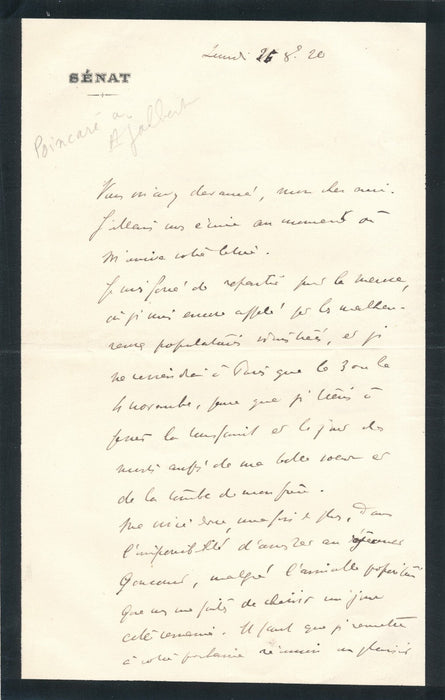 Lundi 25 8e 20
SÉNAT
Poincaré à
Ajalbert
Vous m'avez devancé, mon cher ami.
J'allais vous écrire au moment où
m'arrive votre lettre.
Je suis forcé de repartir pour la Meuse,
où je suis encore appelé par les malheu-
reuses populations sinistrées, et je
ne reviendrai à Paris que le 3 ou le
4 novembre, parce que je tiens à
passer la Toussaint et le jour des
morts auprès de ma belle soeur et
de la tombe de mon frère.
Me voici donc, une fois de plus, dans
l'impossibilité d'assister au déjeuner
Goncourt, malgré l'aimable proposition
que vous me faites de choisir un jour
cette semaine. Il faut que je remette
à votre prochaine réunion un plaisir